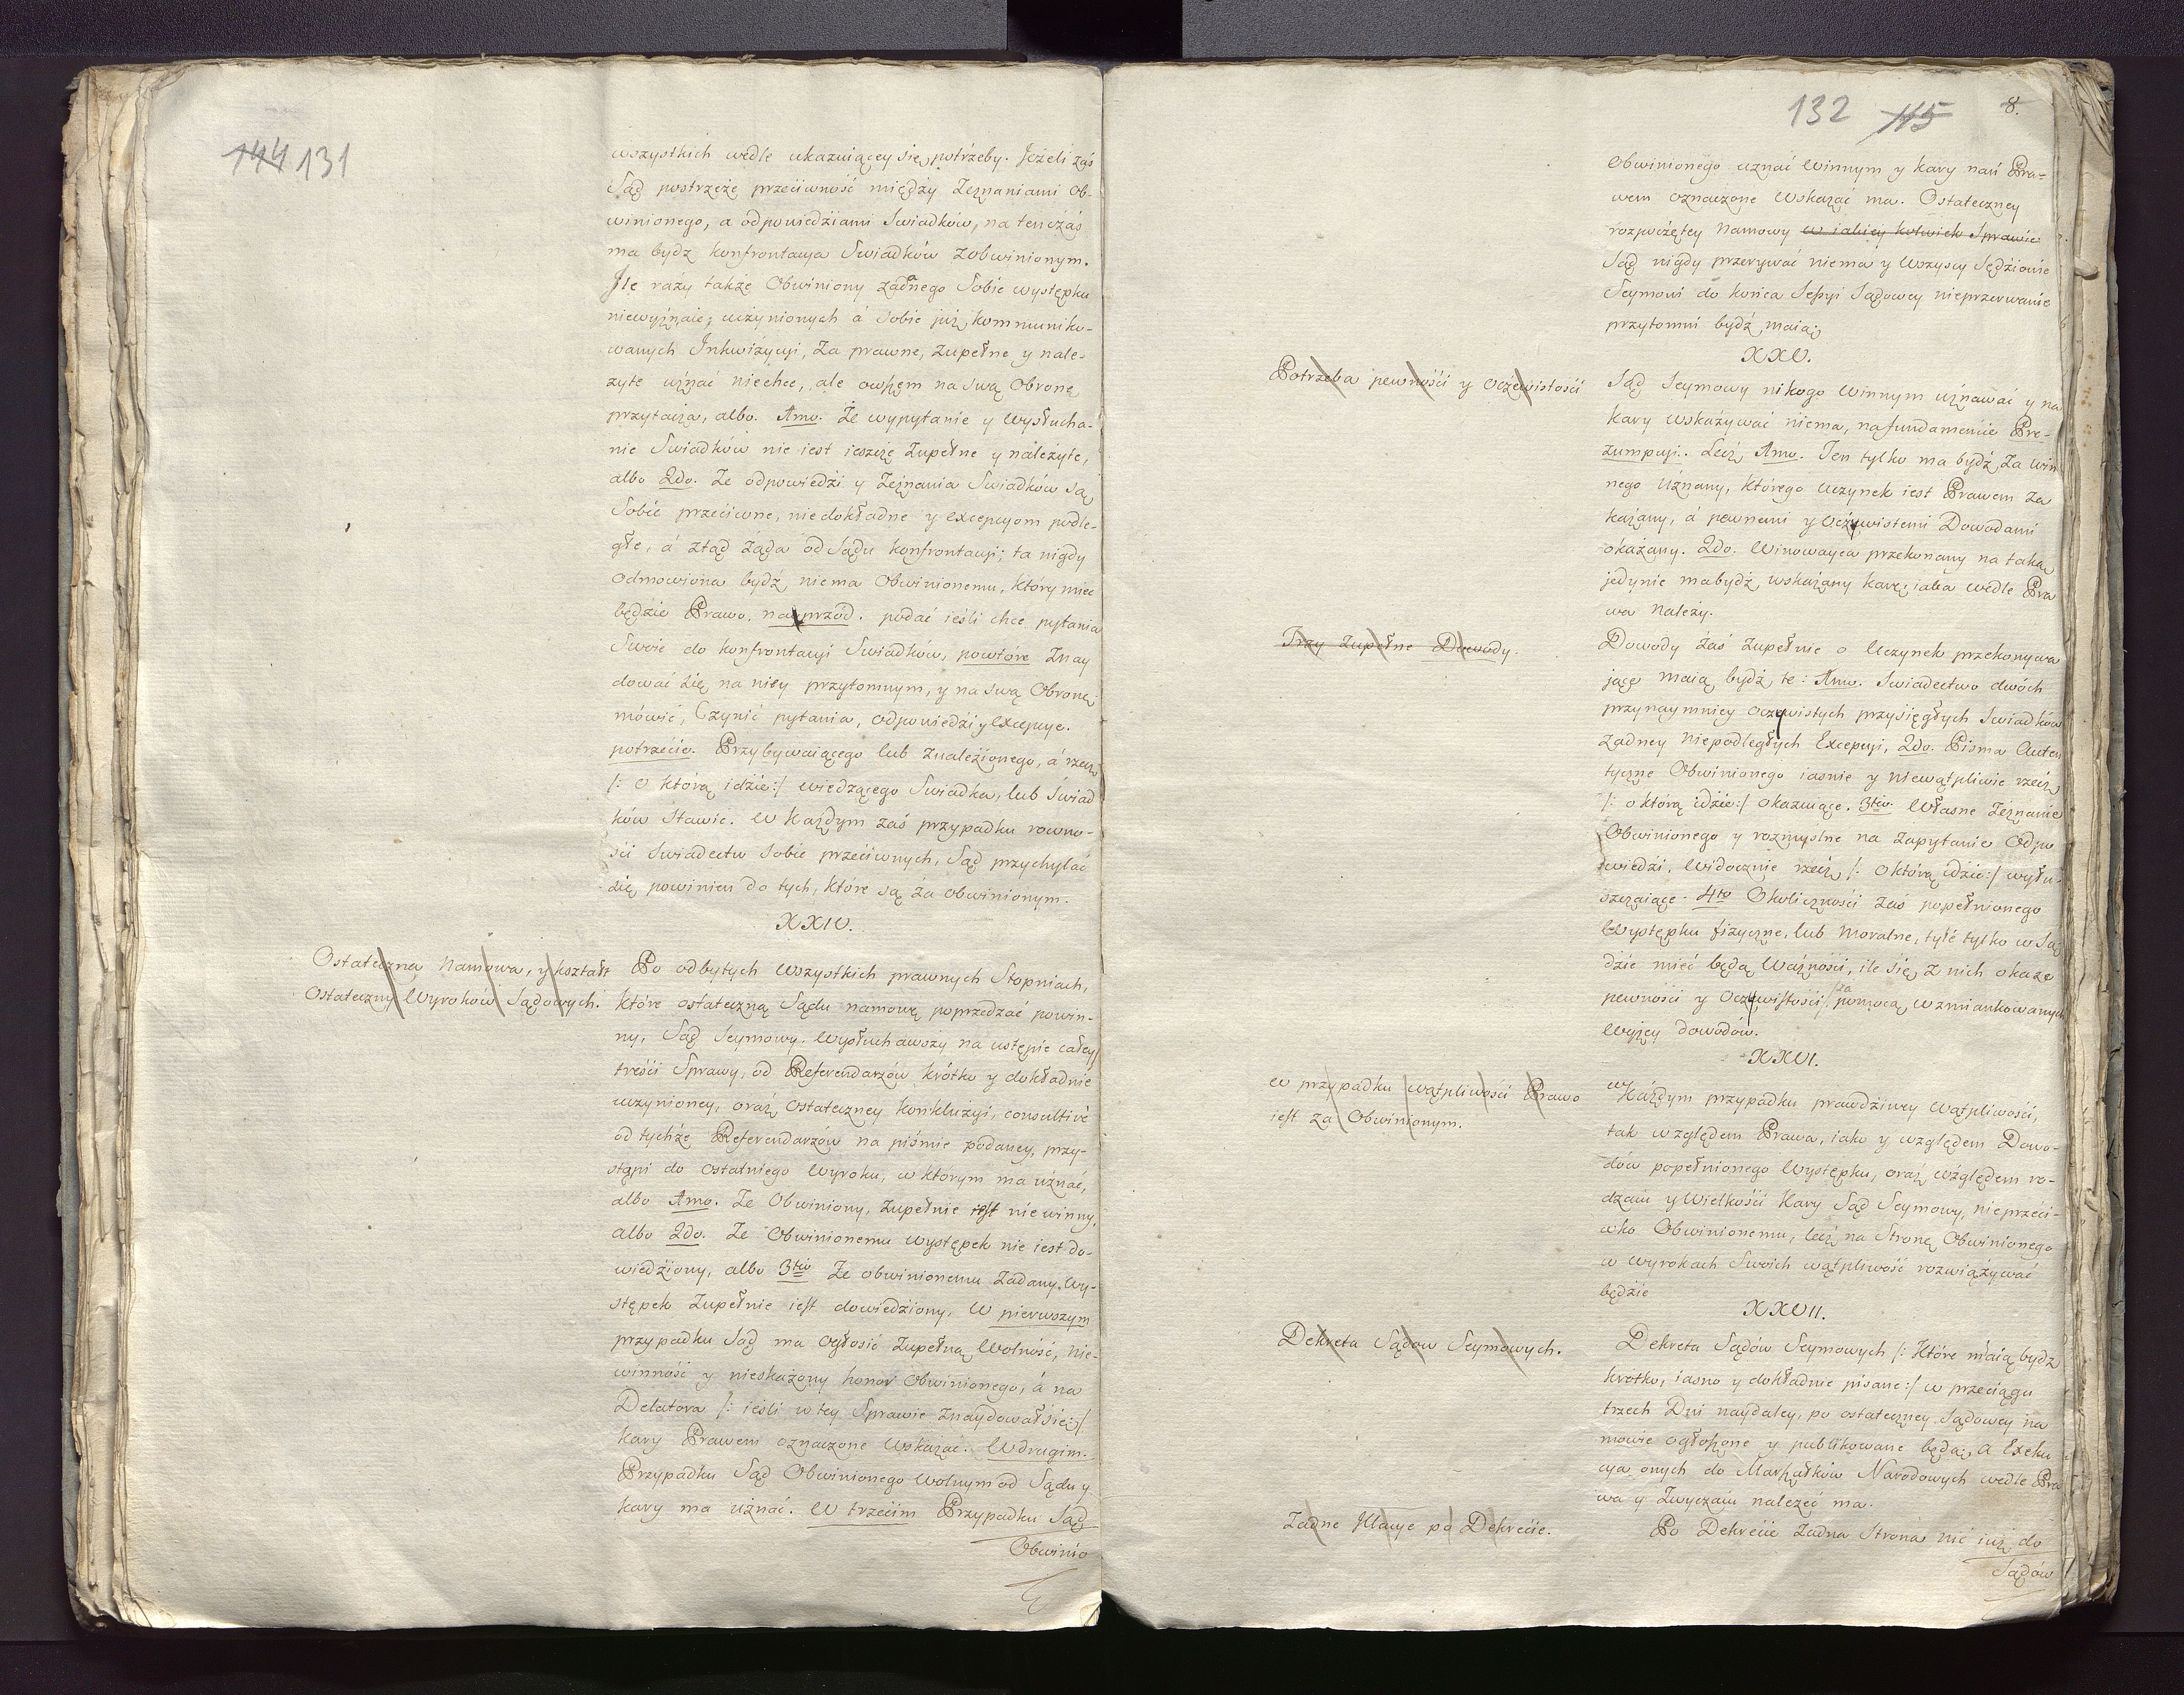 144 131
wszystkich wedle ukazuiącey się potrzeby. Jeżeli zaś
Sąd postrzeże przeciwność między Zeznaniami Ob-
winionego, a odpowiedziami Swiadków, na tenczas
ma bydz konfrontacya Swiadków z obwinionym.
Ile razy także Obwiniony żadnego Sobie występku
niewyznaie; uczynionych á Sobie już kommuniko-
wanych Inkwizycyi, za prawne, zupełne y nale-
żyte uznać niechce, ale owszem na swą Obronę
przytacza, albo. 1mo. Że wypytanie y wysłucha-
nie Swiadków nie iest ieszcze zupełne y należyte,
albo 2do. Że odpowiedzi y Zeznania Swiadków są
Sobie przeciwne, niedokładne y excepcyom podle-
głe, á ztąd żąda od Sądu konfrontacyi; ta nigdy
odmowiona bydź niema Obwinionemu, który mieć
będzie Prawo, nayprzód. podać ieśli chce pytania
Swoie do konfrontacyi Swiadków, powtóre Znay
dować się na niey przytomnym, y na swą Obronę
mówić, Czynić pytania, odpowiedzi y excepcye.
potrzecie. Przybywaiącego lub znalezionego, á rzecz
/: o którą idzie:/ wiedzącego Swiadka, lub Swiad
ków Stawić. W każdym zaś przypadku rowno-
ści Swiadectw Sobie przeciwnych, Sąd przychylać
się powinien do tych, które są za obwinionym.
XXIV.
Ostateczna Namowa, y kształt
Ostateczny Wyroków Sądowych.
Po odbytych wszystkich prawnych Stopniach,
które ostateczną Sądu namowę poprzedzać powin-
ny, Sąd Seymowy, wysłuchawszy na ustępie całey
treści Sprawy, od Referendarzów krótko y dokładnie
uczynioney, oraz ostateczney konkluzyi, consultivè
od tychże Referendarzów na piśmie podaney, przy-
stąpi do ostatniego Wyroku, w którym ma uznać,
albo 1mo. Że Obwiniony, zupełnie iest niewinny,
albo 2do. Że Obwinionemu występek nie iest do-
wiedziony, albo 3tio Że obwinionemu zadany Wy-
stępek zupełnie iest dowiedziony. W pierwszym
przypadku Sąd ma ogłosić zupełną Wolność, nie-
winność y nieskażony honor Obwinionego, á na
Delatora /: ieśli w tey Sprawie znaydował się:/
kary Prawem oznaczone wskazać. W drugim.
Przypadku Sąd Obwinionego wolnym od Sądu y
kary ma uznać. W trzecim Przypadku Sąd
Obwinio
132 115 8.
Obwinionego uznać Winnym y kary nań Pra-
wem oznaczone Wskazać ma. Ostateczney
rozpoczętey Namowy w iakiey kolwiek Sprawie
Sąd nigdy przerywać niema y Wszyscy Sędziowie
Seymowi do końca Sessyi Sądowey nieprzerwanie
przytomni bydź maią.
XXV.
Potrzeba pewności y Oczewistości
Sąd Seymowy nikogo Winnym uznawać y na
kary wskazywać niema, na fundamencie Pre-
zumpcyi. Lecz 1mo. Ten tylko ma bydź za Win
nego Uznany, którego Uczynek iest Prawem za
kazany, á pewnemi y Oczywistemi Dowodami
okazany. 2do. Winowayca przekonany na taką
jedynie ma bydź wskazany karę, iaka wedle Pra
wa należy.
Trzy zupełne Dowody.
Dowody zaś zupełnie o Uczynek przekonywa
jące maią bydź te: 1mo. Swiadectwo dwóch
przynaymniey oczywistych przysięgłych Swiadków
żadney Niepodległych Excepcyi, 2do. Pisma Auten
tyczne Obwinionego iasnie y niewątpliwie rzecz
/: o którą idzie:/ okazuiące. 3tio. Własne Zeznanie
Obwinionego y rozmyślne na zapytanie Odpo
wiedzi, widocznie rzecz /: o którą idzie:/ wyłu-
szczaiące. 4to Okoliczności zaś popełnionego
Występku fizyczne, lub Moralne, tyle tylko w Są
dzie mieć będą Ważności, ile się z nich okaże
pewności y Oczywistości /: za pomocą wzmiankowanych
Wyżey dowodów.
XXVI.
w przypadku wątpliwości Prawo
iest za Obwinionym.
w Każdym przypadku prawdziwey wątpliwości,
tak względem Prawa, iako y względem Dowo-
dów popełnionego Występku, oraz względem ro-
dzaiu y Wielkości Kary Sąd Seymowy, nieprzeci-
wko Obwinionemu, lecz na Stronę Obwinionego
w wyrokach Swoich wątpliwość rozwiązywać
będzie
XXVII.
Dekreta Sądow Seymowych.
Dekreta Sądów Seymowych /: Które maią bydź
krotko, iasno y dokładnie pisane:/ w przeciągu
trzech Dni naydaley, po ostateczney Sądowey na
mowie ogłoszone y publikowane będą, a Exeku
cya onych do Marszałków Narodowych wedle Pra
wa y Zwyczaiu należeć ma.
Żadne Illacye po Dekrecie.
Po Dekrecie żadna Strona nic iuż do
Sądów